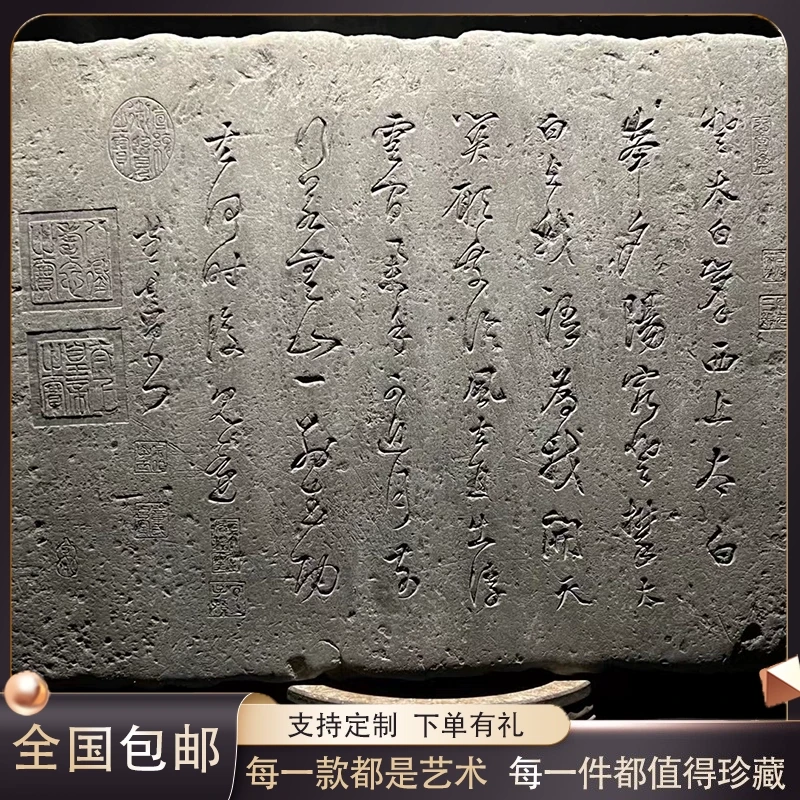 登太白峯西上太白
峯夕陽窮登攀太
白與我語為我開天
關願乘泠風去直出浮
雲間舉手可近月前
行若無山一別武功
去何時復見還
八徵耄念之寶
太上皇帝之寶
全国包邮
支持定制 下单有礼
每一款都是艺术 每一件都值得珍藏